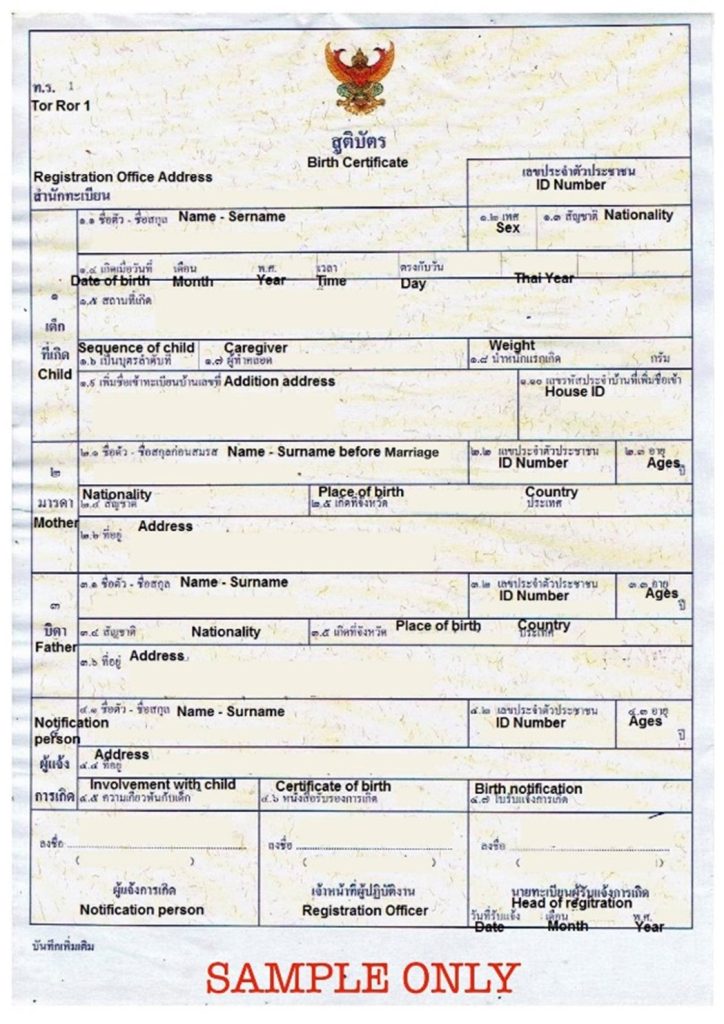 ท.ร. 1
Tor Ror 1
สูติบัตร
Birth Certificate
Registration Office Address
สำนักทะเบียน
เลขประจำตัวประชาชน
ID Number
๑.๑ ชื่อตัว - ชื่อสกุล Name - Sername
๑.๒ เพศ
Sex
๑.๓ สัญชาติ Nationality
๑.๔ เกิดเมื่อวันที่ เดือน พ.ศ. เวลา ตรงกับวัน
Date of birth Month Year Time Day Thai Year
๑.๕ สถานที่เกิด
๑
เด็ก
ที่เกิด
Child
Sequence of child Caregiver Weight
๑.๖ เป็นบุตรลำดับที่ ๑.๗ ผู้ทำคลอด ๑.๘ น้ำหนักแรกเกิด กรัม
๑.๙ เพิ่มชื่อเข้าทะเบียนบ้านเลขที่ Addition address
๑.๑๐ เลขรหัสประจำบ้านที่เพิ่มชื่อเข้า
House ID
๒
มารดา
Mother
๒.๑ ชื่อตัว - ชื่อสกุลก่อนสมรส Name - Surname before Marriage
๒.๒ เลขประจำตัวประชาชน
ID Number
๒.๓ อายุ
Ages
ปี
Nationality Place of birth Country
๒.๔ สัญชาติ ๒.๕ เกิดที่จังหวัด ประเทศ
Address
๒.๖ ที่อยู่
๓
บิดา
Father
๓.๑ ชื่อตัว - ชื่อสกุล Name - Surname
๓.๒ เลขประจำตัวประชาชน
ID Number
๓.๓ อายุ
Ages
ปี
๓.๔ สัญชาติ Nationality ๓.๕ เกิดที่จังหวัด Place of birth Country
ประเทศ
๓.๖ ที่อยู่ Address
Notification
person
๔
ผู้แจ้ง
การเกิด
๔.๑ ชื่อตัว - ชื่อสกุล Name - Surname
๔.๒ เลขประจำตัวประชาชน
ID Number
๔.๓ อายุ
Ages
ปี
Address
๔.๔ ที่อยู่
Involvement with child Certificate of birth Birth notification
๔.๕ ความเกี่ยวพันกับเด็ก ๔.๖ หนังสือรับรองการเกิด ๔.๗ ใบรับแจ้งการเกิด
ลงชื่อ ลงชื่อ ลงชื่อ
( ) ( ) ( )
ผู้แจ้งการเกิด เจ้าหน้าที่ผู้ปฏิบัติงาน นายทะเบียนผู้รับแจ้งการเกิด
Notification person Registration Officer Head of regitration
วันที่รับแจ้ง เดือน พ.ศ.
Date Month Year
บันทึกเพิ่มเติม
SAMPLE ONLY